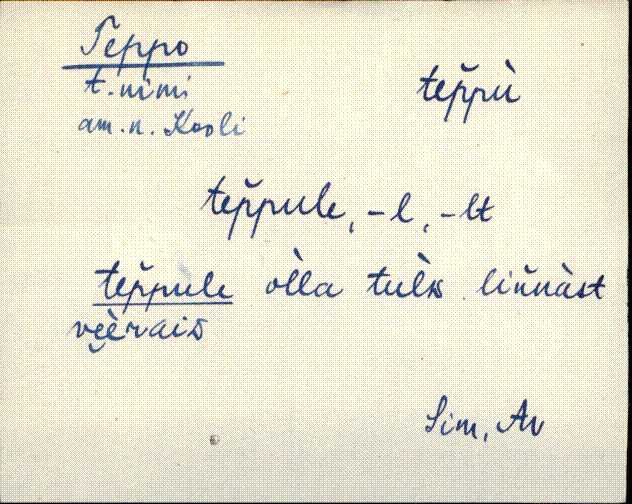 Teppo
t. nimi
am. n. Kooli
tep̌pù
tep̌pule, -l, -lt
tep̌pule òlla tulɛ̀s liňnàst
vèèrais
Sim, Av